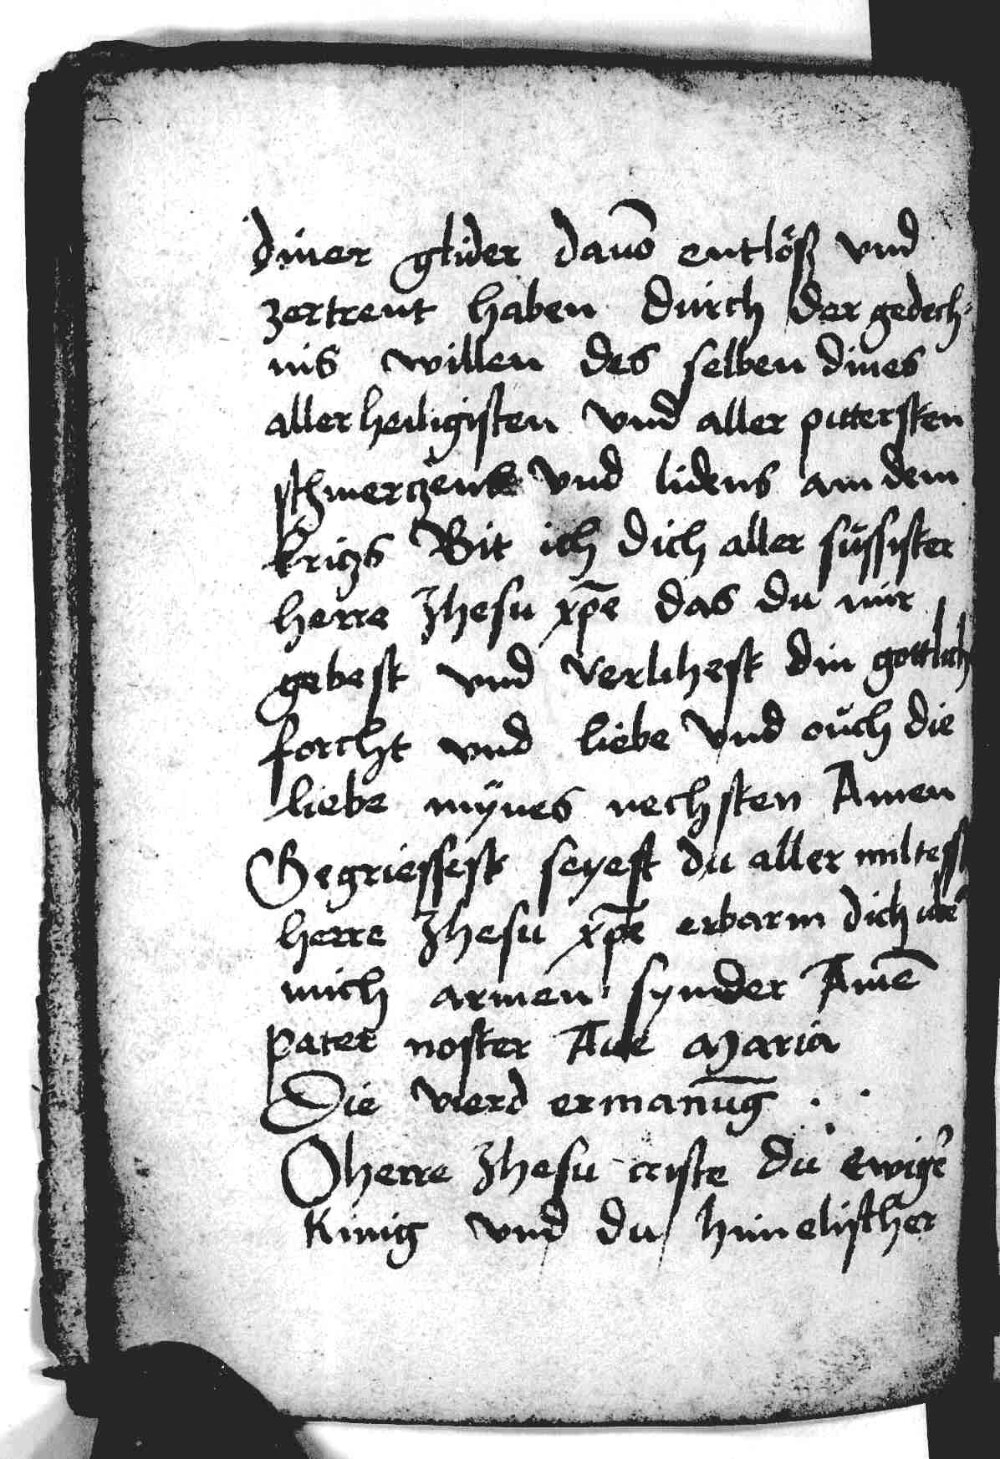 diner glider dauō entlöß vnd
zertrent haben durch der gedech-
nis willen des selben dines
aller heiligisten vnd aller pittersten
schmerczens vnd lidens am dem
kriczs Bit ich dich aller süssister
herre Jhesu xp̄e das du mir
gebest vnd verlihest din gottlich
forcht vnd liebe vnd oüch die
liebe mÿnes nechsten Amen
Gegriessest seyest du aller miltest
herre Jhesu xp̄e erbarm dich
mich armen synder Amē
pater noster Aue Maria
Die vierd ermanūg
O herre Jhesu criste du ewiger
Kinig vnd du himelischer